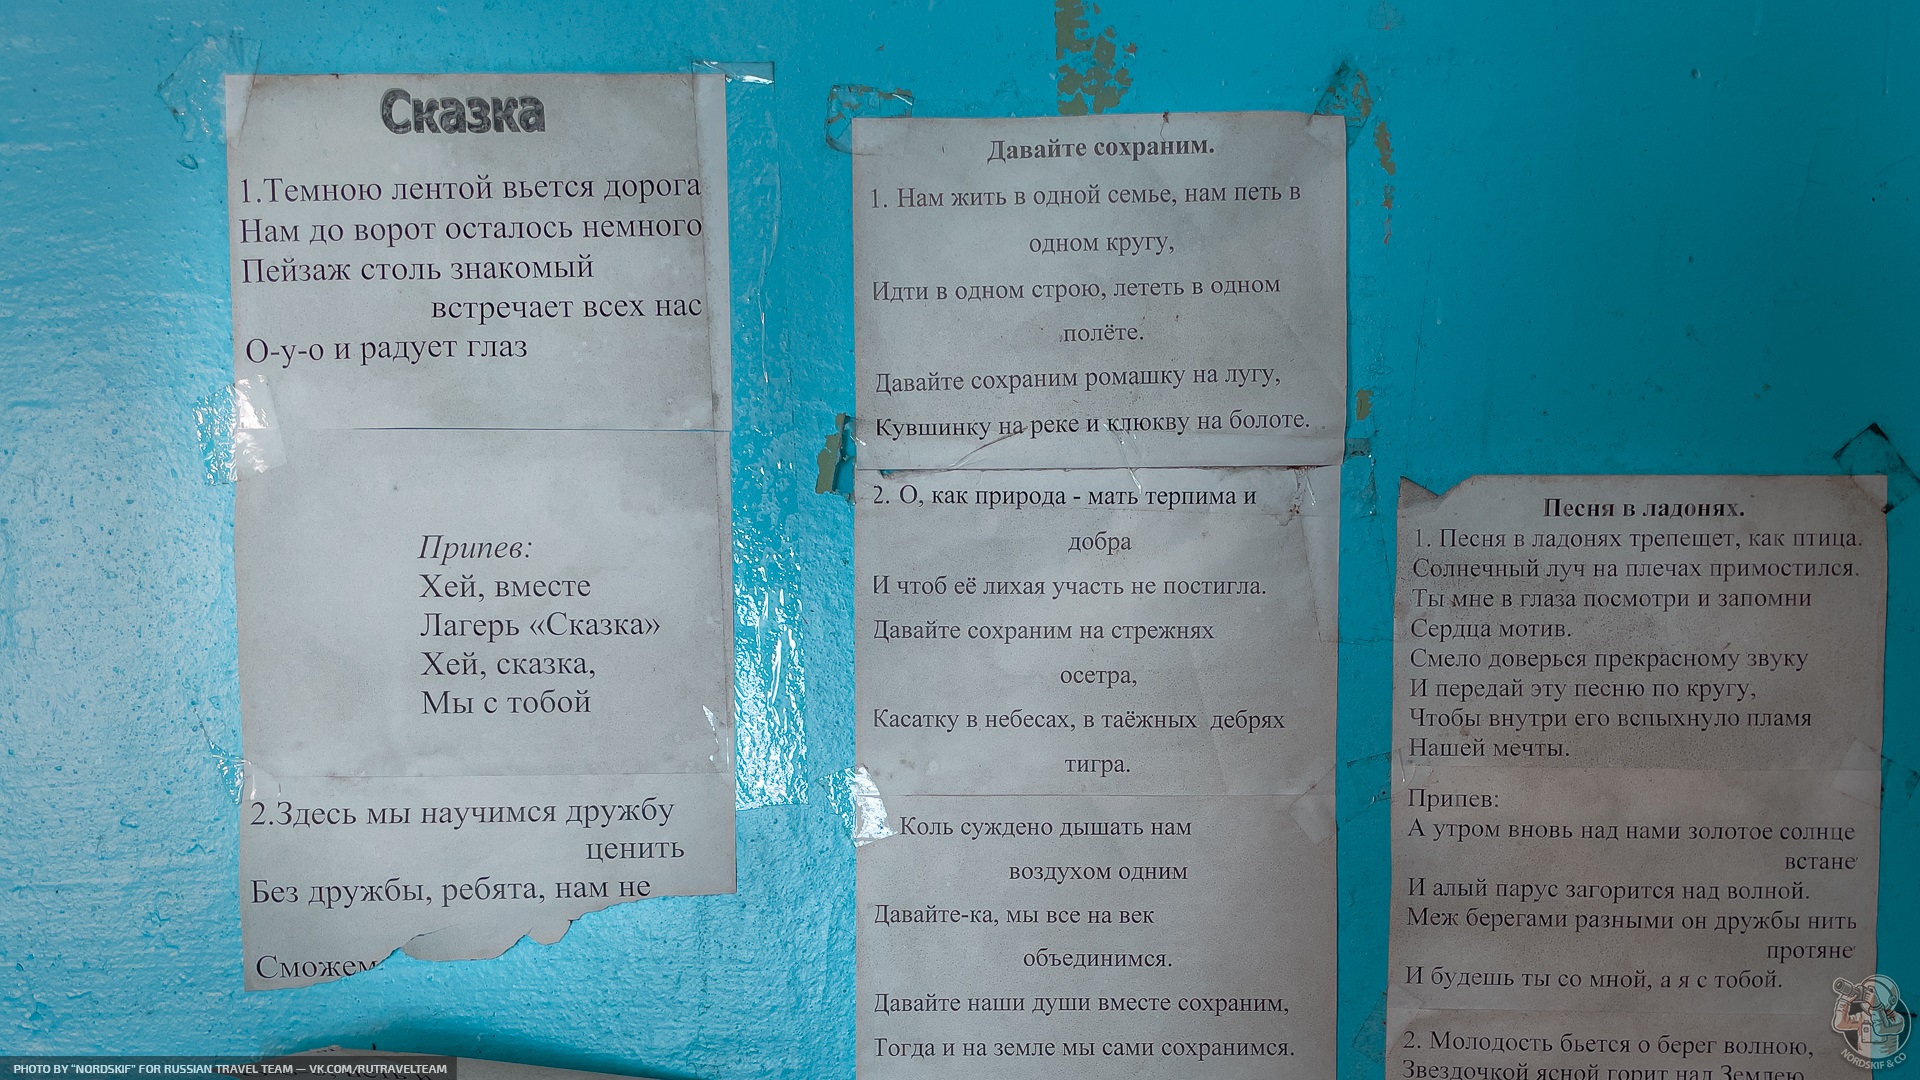 Сказка
1.Темною лентой вьется дорога
Нам до ворот осталось немного
Пейзаж столь знакомый
встречает всех нас
О-у-о и радует глаз
Припев:
Хей, вместе
Лагерь «Сказка»
Хей, сказка,
Мы с тобой
2.Здесь мы научимся дружбу
ценить
Без дружбы, ребята, нам не
Сможем
Давайте сохраним.
1. Нам жить в одной семье, нам петь в
одном кругу,
Идти в одном строю, лететь в одном
полёте.
Давайте сохраним ромашку на лугу,
Кувшинку на реке и клюкву на болоте.
2. О, как природа - мать терпима и
добра
И чтоб её лихая участь не постигла.
Давайте сохраним на стрежнях
осетра,
Касатку в небесах, в таёжных дебрях
тигра.
Коль суждено дышать нам
воздухом одним
Давайте-ка, мы все на век
объединимся.
Давайте наши души вместе сохраним,
Тогда и на земле мы сами сохранимся.
Песня в ладонях.
1. Песня в ладонях трепещет, как птица.
Солнечный луч на плечах примостился.
Ты мне в глаза посмотри и запомни
Сердца мотив.
Смело доверься прекрасному звуку
И передай эту песню по кругу,
Чтобы внутри его вспыхнуло пламя
Нашей мечты.
Припев:
А утром вновь над нами золотое солнце
встане
И алый парус загорится над волной.
Меж берегами разными он дружбы нить
протяне
И будешь ты со мной, а я с тобой.
2. Молодость бьется о берег волною,
Звездочкой ясной горит над Землею
PHOTO BY "NORDSKIF" FOR RUSSIAN TRAVEL TEAM — VK.COM/RUTRAVELTEAM
NORDSKIF & CO